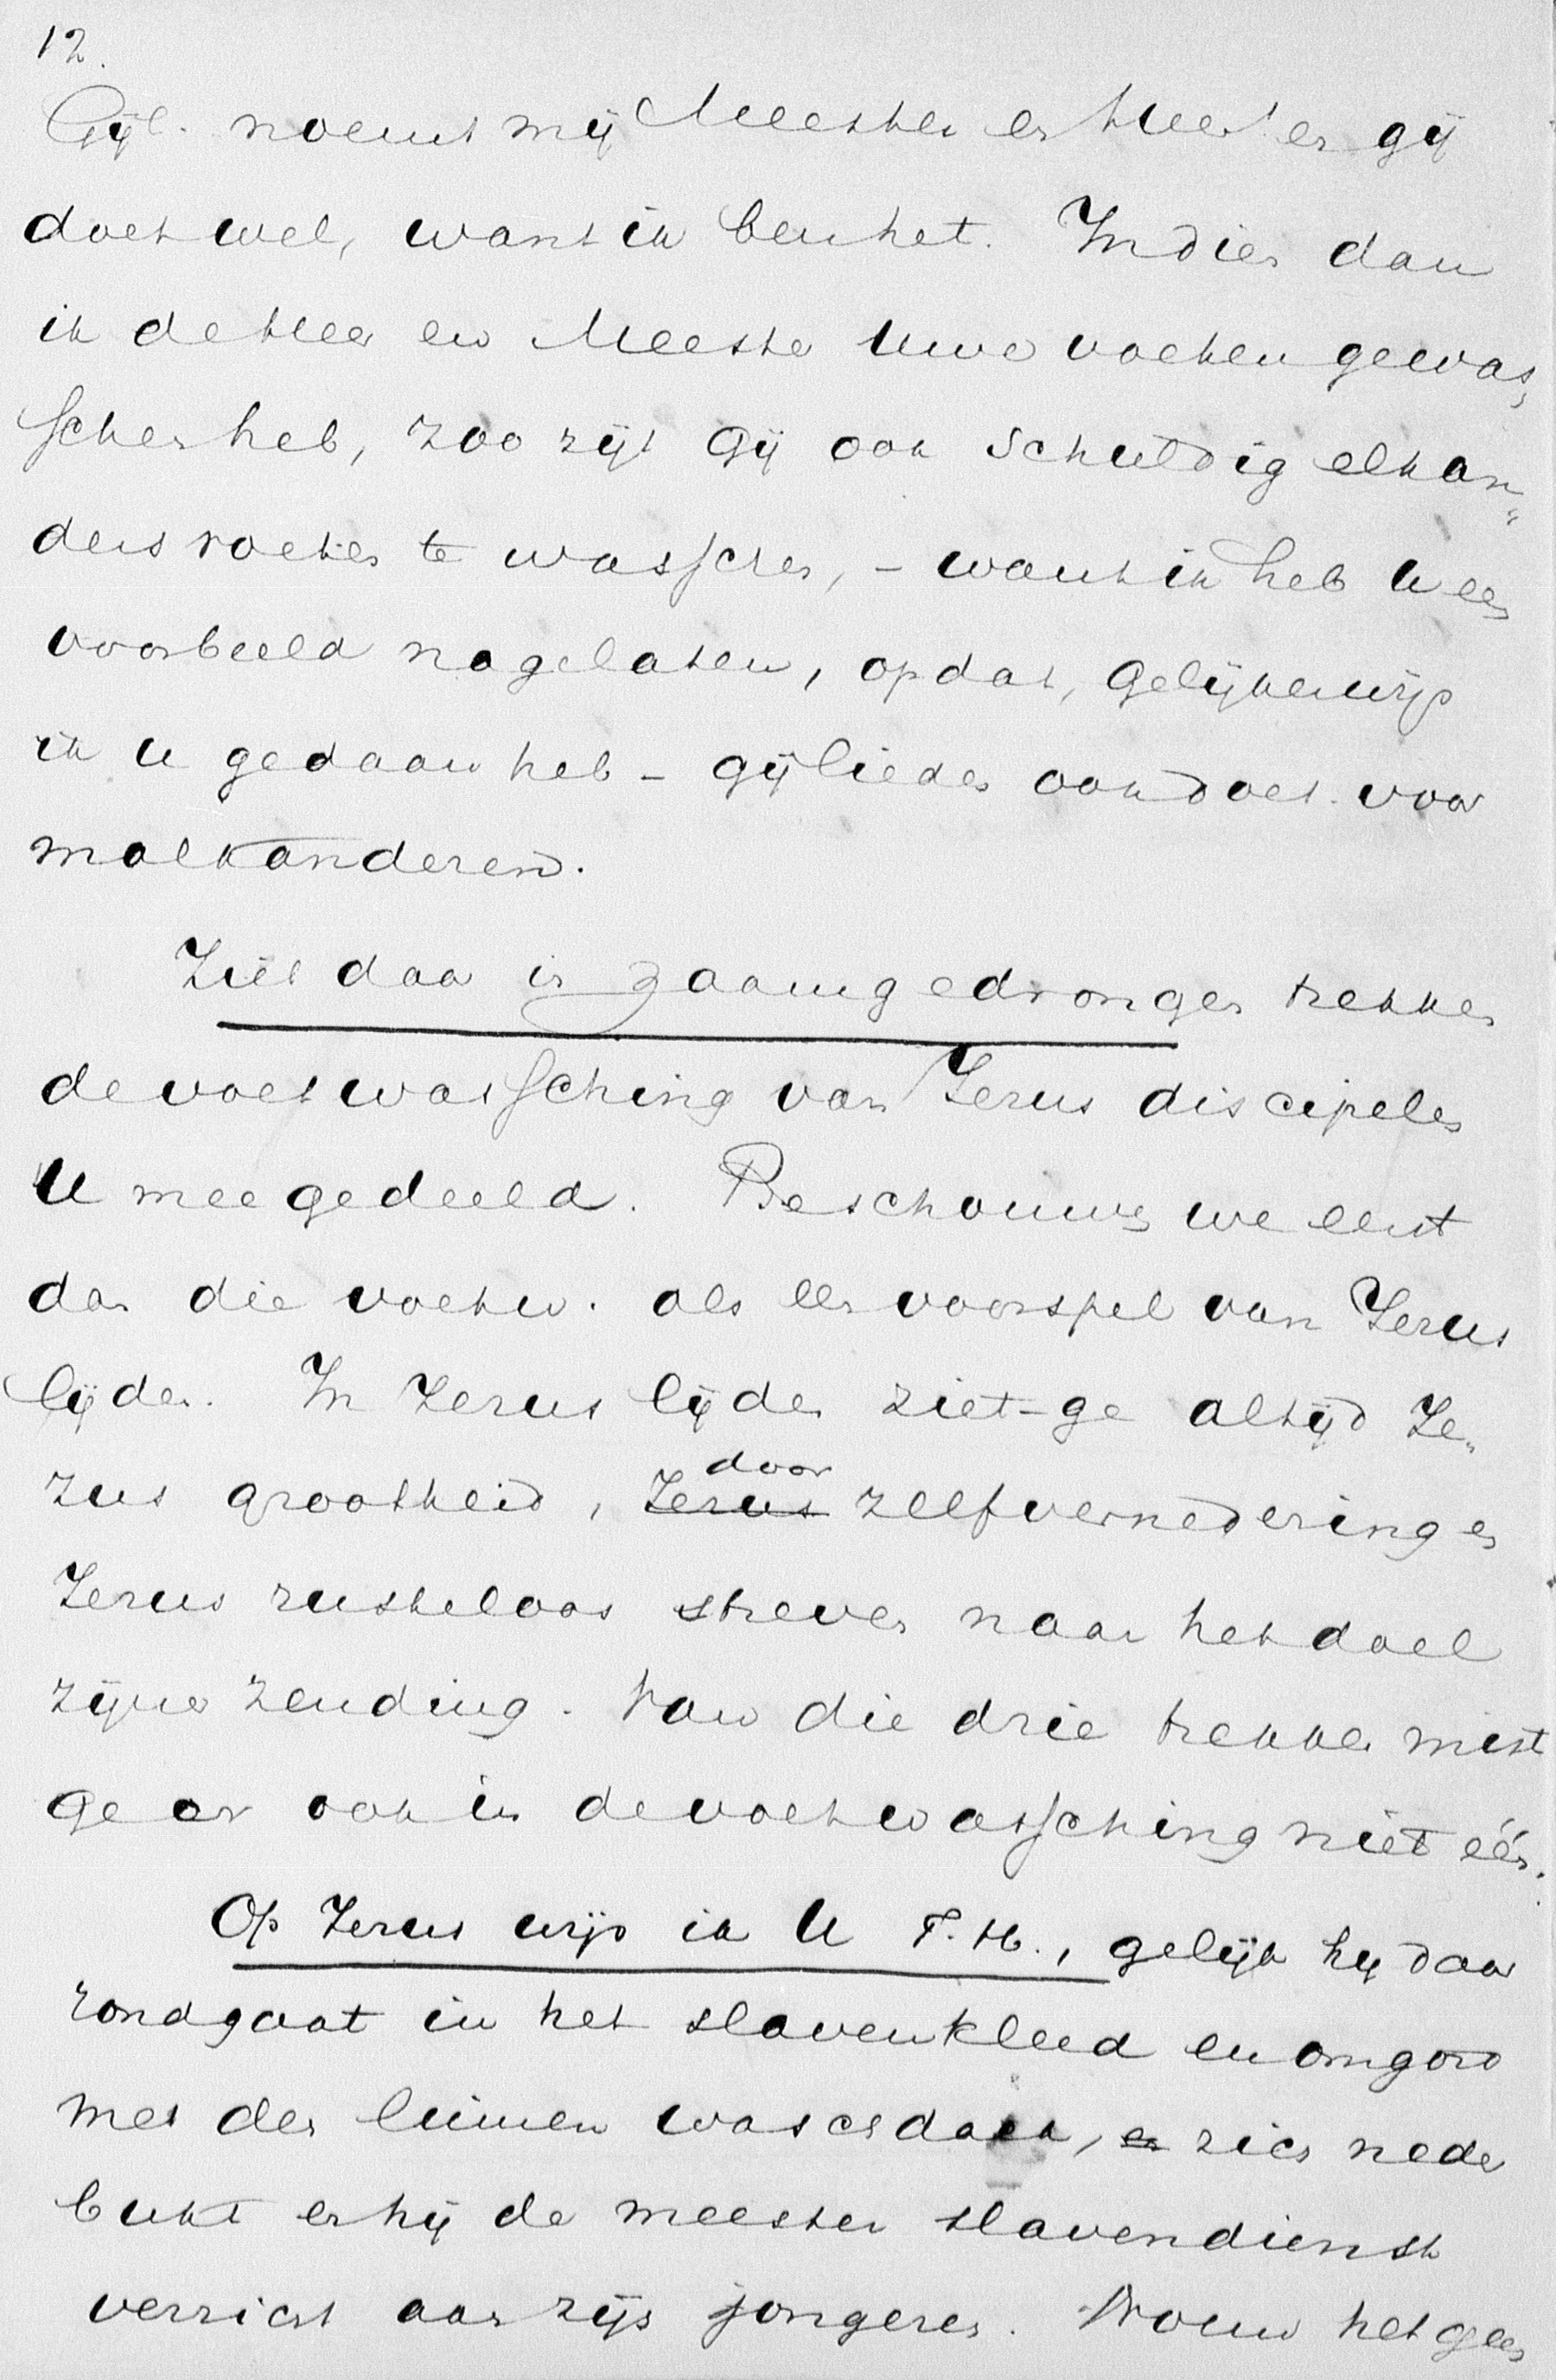 12.
Gijl. noemt mij Meester en Heer en gij
doet wel, want ik ben het. Indien dan
ik de Heer en Meester Uwe voeten gewas„
schen heb, zoo zijt Gij ook schuldig elkan„
ders voeten te wasschen, – want ik heb U een
voorbeeld nagelaten, opdat, gelijkerwijs
ik U gedaan heb – gijlieden ook doet voor
malkanderen.
Ziet daar in zaamgedrongen trekken
de voetwassching van Jezus discipelen
U meegedeeld. Beschouwen we eerst
dan die voetw. als een voorspel van Jezus
lijden. In Jezus lijden ziet-ge altijd Je„
zus grootheid, Jezus door zelfvernedering en
Jezus rusteloos streven naar het doel
zijner zending. Van die drie trekken mist
ge er ook in de voetwassching niet één.
Op Jezus wijs ik U T.H., gelijk hij daar
rondgaat in het slavenkleed en omgord
met den linnen waschdoek, en zich neder
bukt en hij de meester slavendienst
verricht aan zijn jongeren. Trouw hetgeen